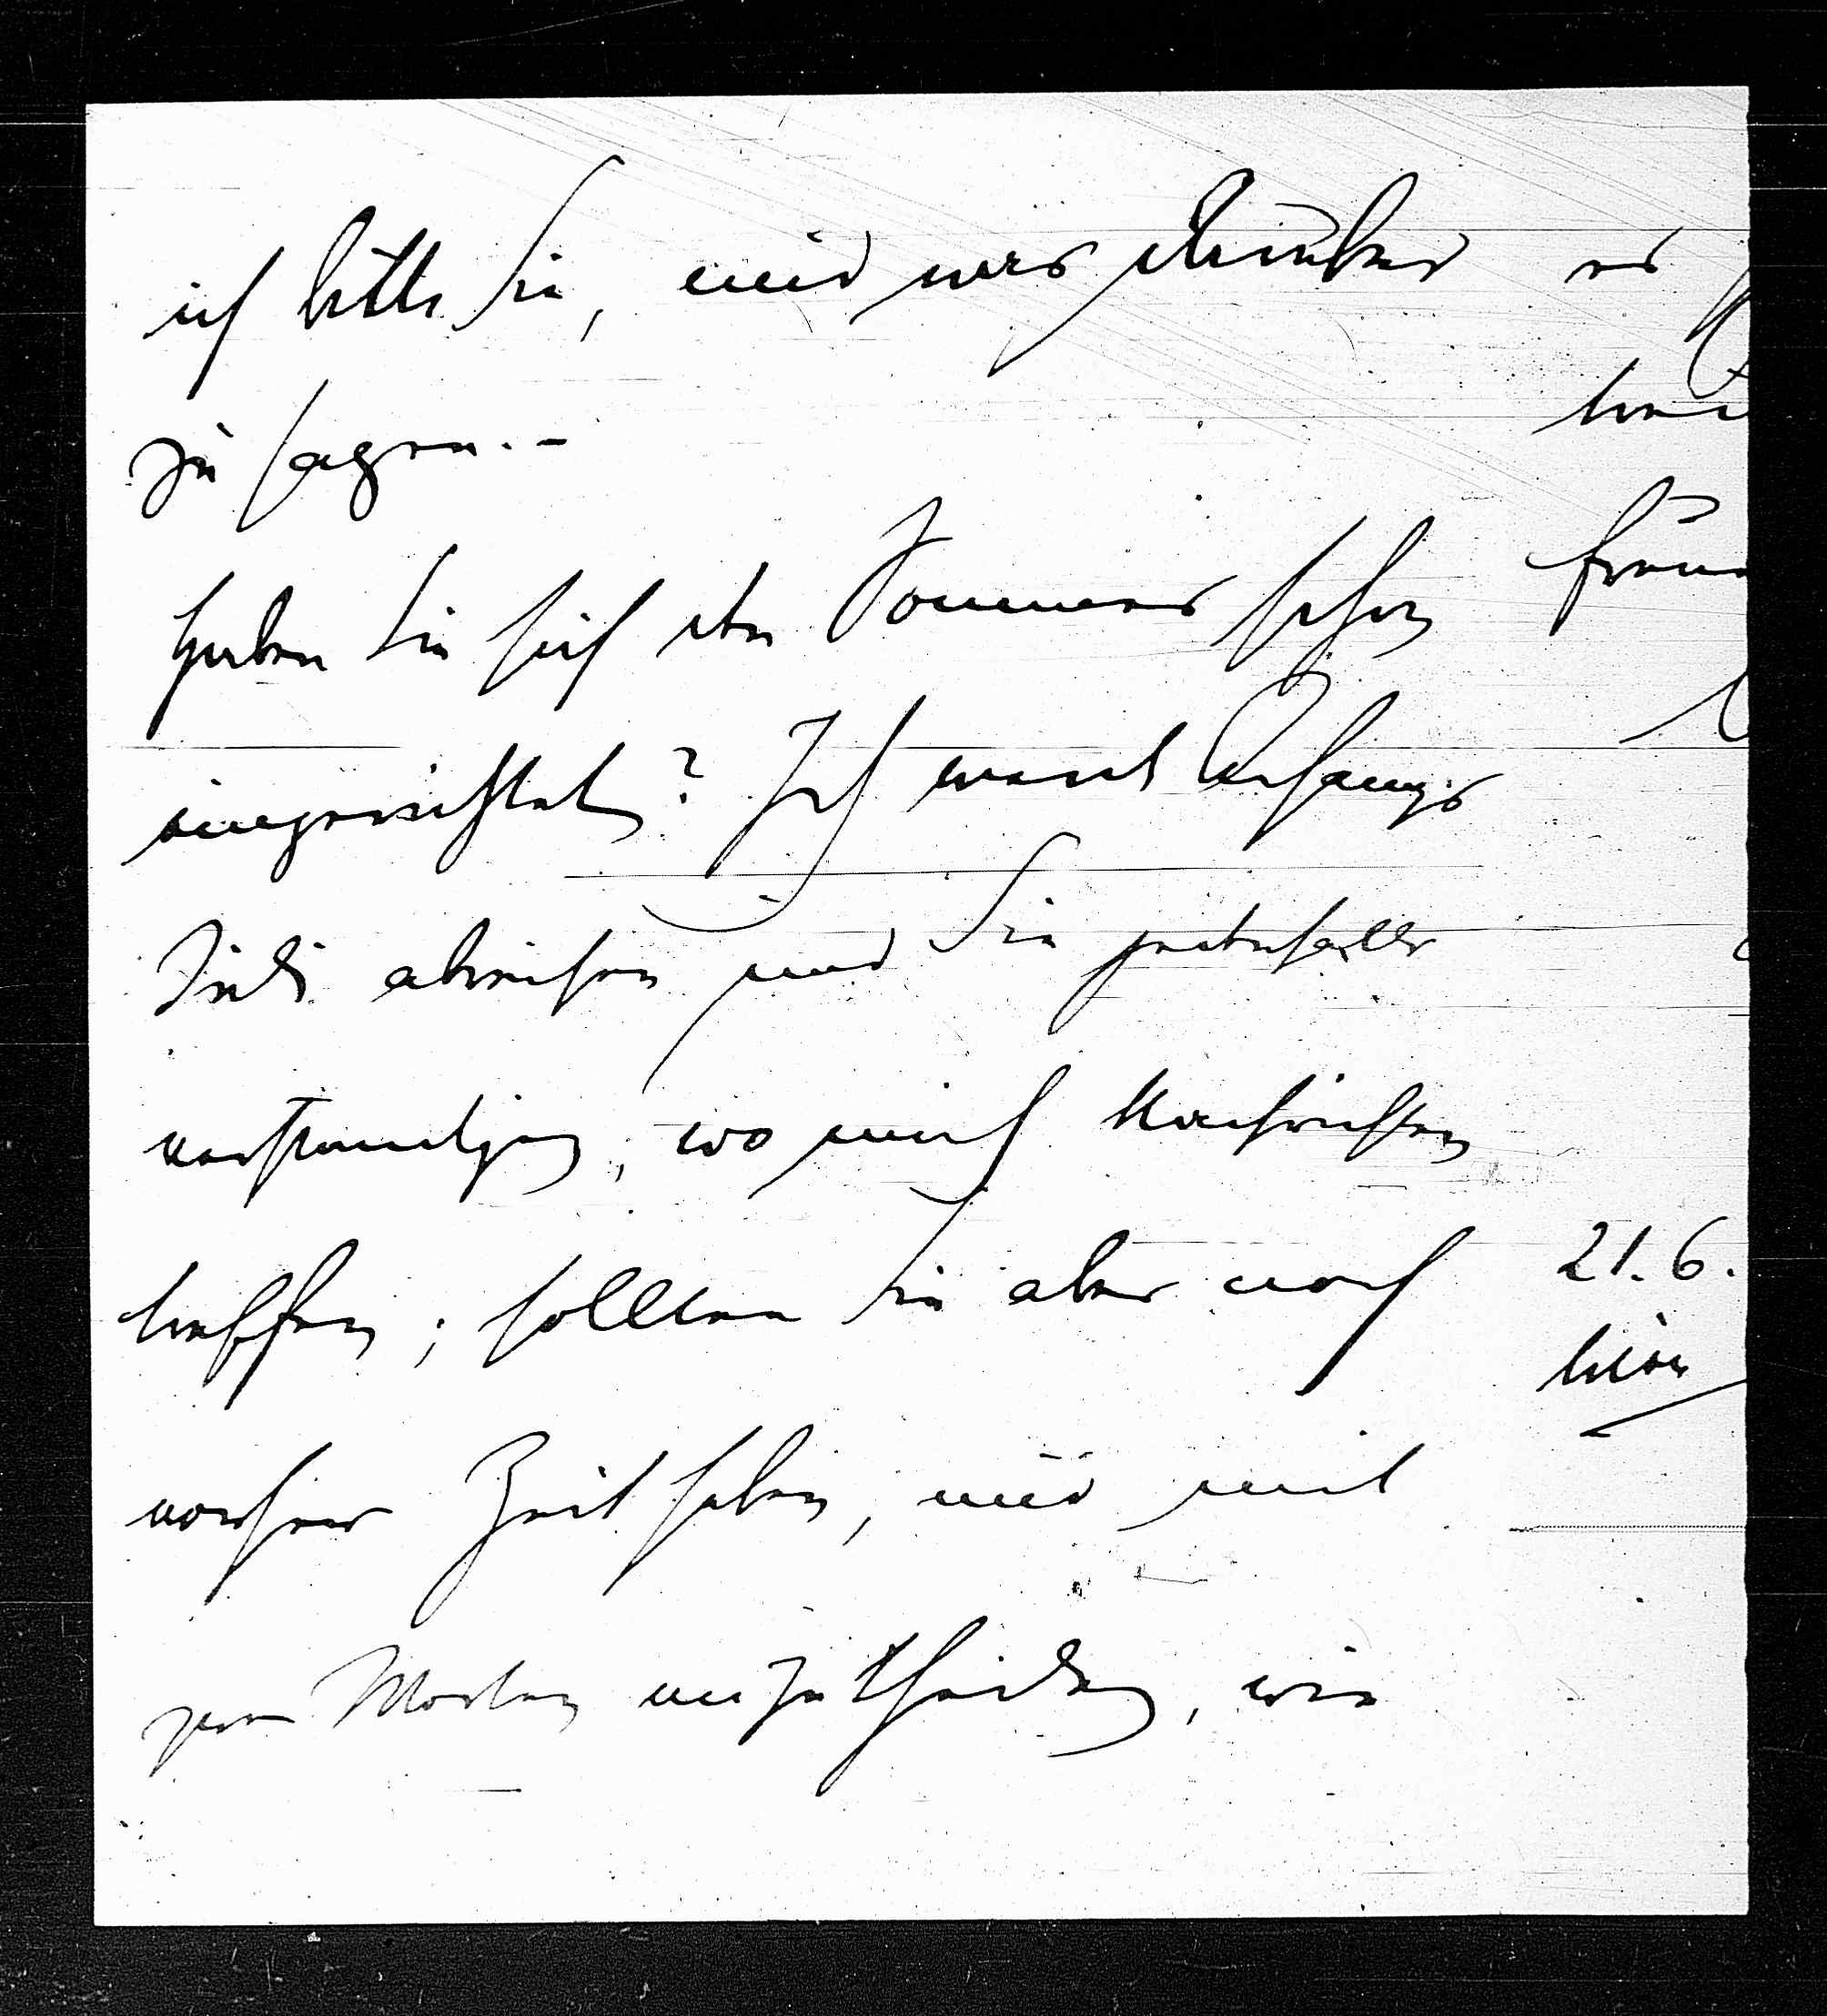 ich bitte Sie, mir was darüber
zu sagen.–
Haben Sie sich den Sommer schon
eingerichtet? Ich werde Anfangs
Juli abreisen und Sie jedenfalls
verständigen, wo mich Nachrichten
treffen; sollten Sie aber noch
vorher Zeit haben, mir mit
zwei Worten mitzutheilen, wie
21.6.
Wien